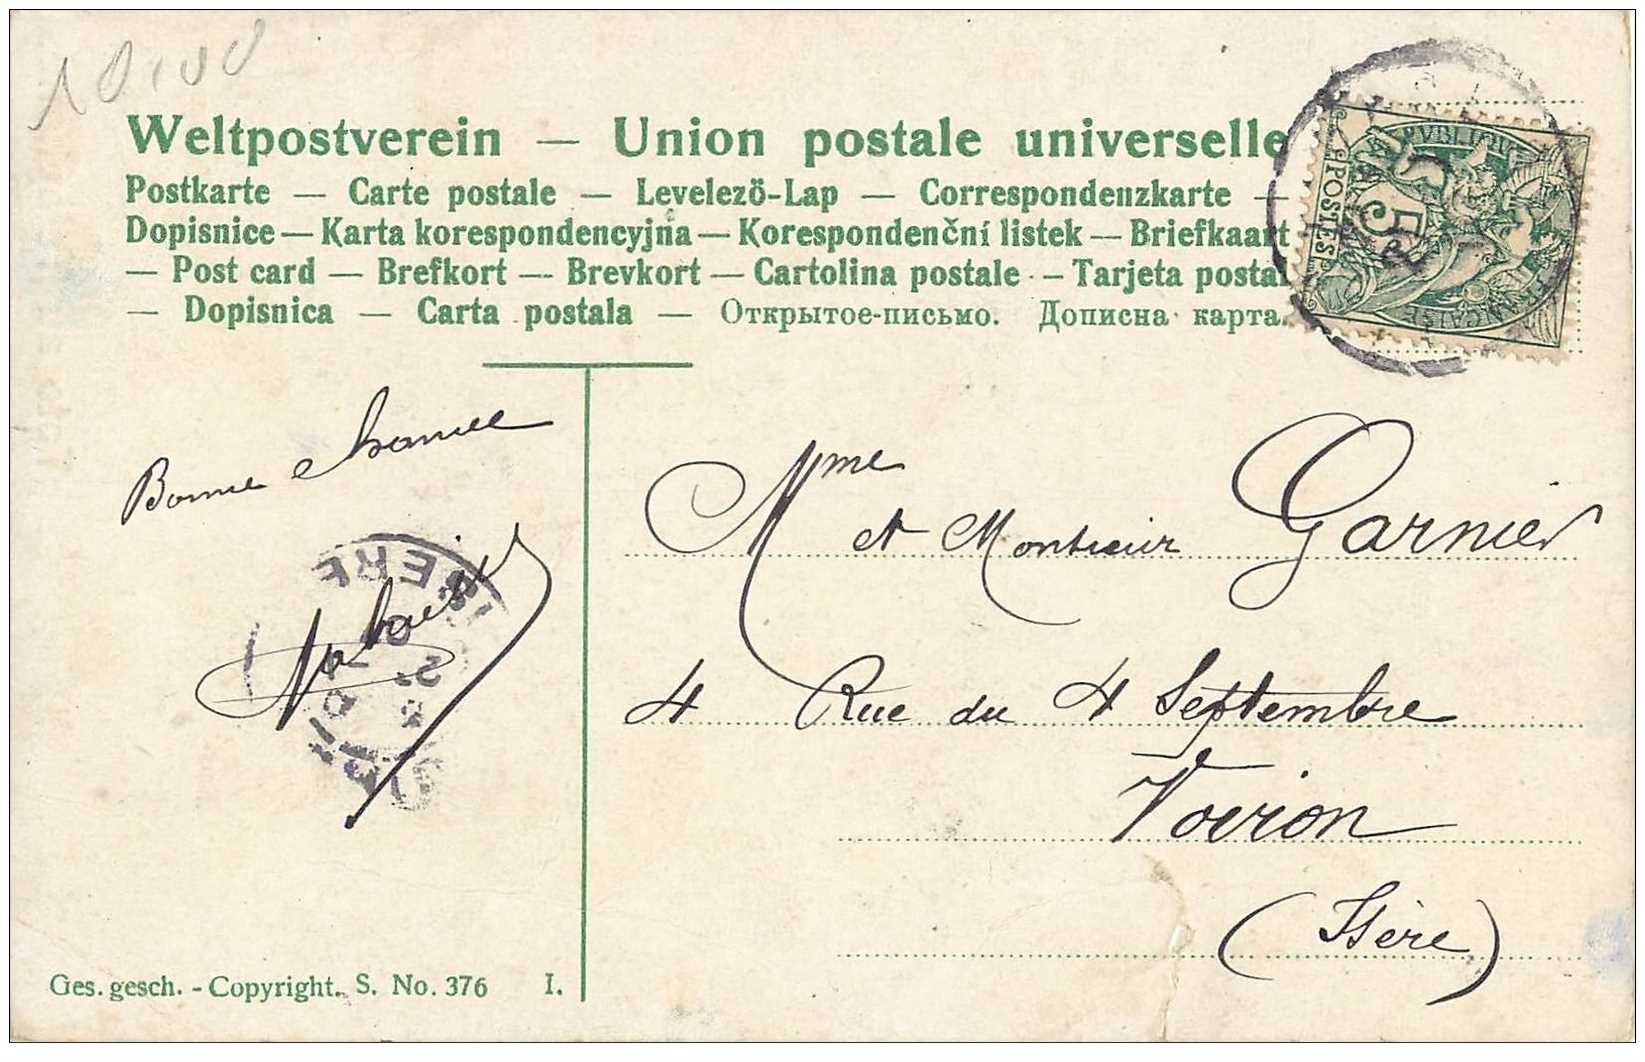 10,00
Weltpostverein — Union postale universelle
Postkarte — Carte postale — Levelező-Lap — Correspondenzkarte —
Dopisnice — Karta korespondencyjna — Korespondenční listek — Briefkaart
— Post card — Brefkort — Brevkort — Cartolina postale — Tarjeta postal
— Dopisnica — Carta postala — Открытое-письмо. Дописна карта.
RÉPUBLIQUE FRANÇAISE
POSTES
5
Bonne chance
Mme
et Monsieur Garnier
4 Rue du 4 Septembre
Voiron
(Isère)
ISERE
Ges. gesch. - Copyright. S. No. 376 I.